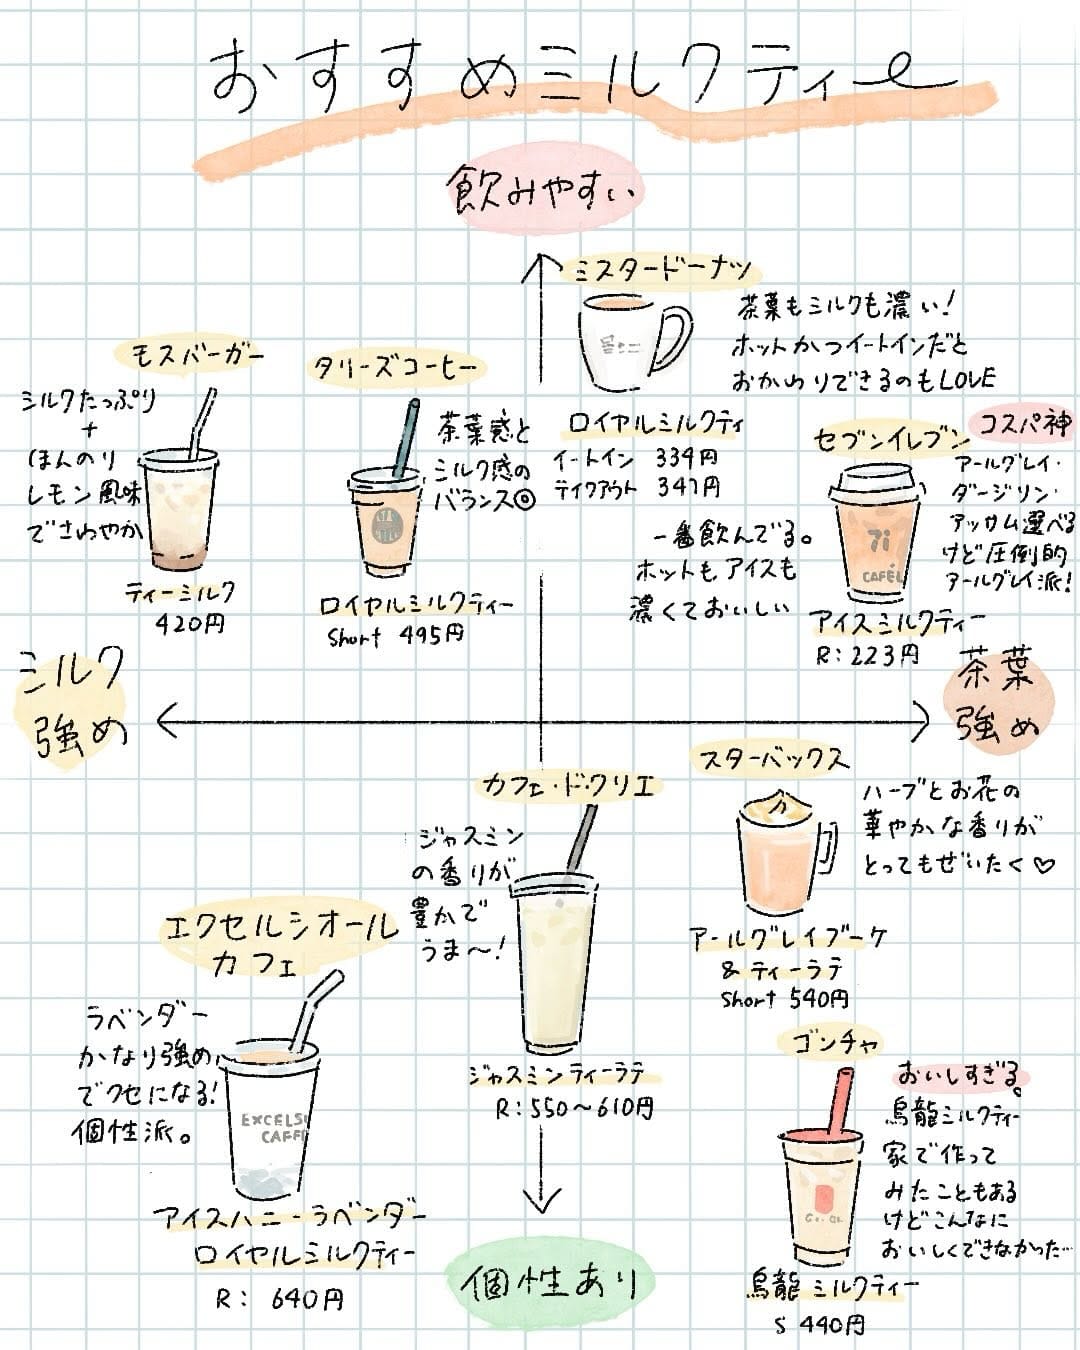 おすすめミルクティー
飲みやすい
ミスタードーナツ
茶葉もミルクも濃い!
ホットかつイートインだと
おかわりできるのもLOVE
ロイヤルミルクティ
イートイン 334円
テイクアウト 341円
モスバーガー
ミルクたっぷり
+
ほんのり
レモン風味
でさわやか
ティーミルク
420円
タリーズコーヒー
茶葉感と
ミルク感の
バランス◎
ロイヤルミルクティー
Short 495円
セブンイレブン
コスパ神
アールグレイ・
ダージリン・
アッサム選べる
けど圧倒的
アールグレイ派!
一番飲んでる。
ホットもアイスも
濃くておいしい
7i
CAFÉ
アイスミルクティー
R:223円
ミルク
強め
茶葉
強め
カフェ・ド・クリエ
ジャスミン
の香りが
豊かで
うま〜!
ジャスミンティーラテ
R:550〜610円
スターバックス
ハーブとお花の
華やかな香りが
とってもぜいたく♡
アールグレイブーケ
&ティーラテ
Short 540円
エクセルシオール
カフェ
ラベンダー
かなり強め
でクセになる!
個性派。
EXCELSI
CAFFE
アイスハニーラベンダー
ロイヤルミルクティー
R: 640円
ゴンチャ
おいしすぎる。
烏龍ミルクティー
家で作って
みたこともある
けどこんなに
おいしくできなかった…
烏龍ミルクティー
S 440円
個性あり